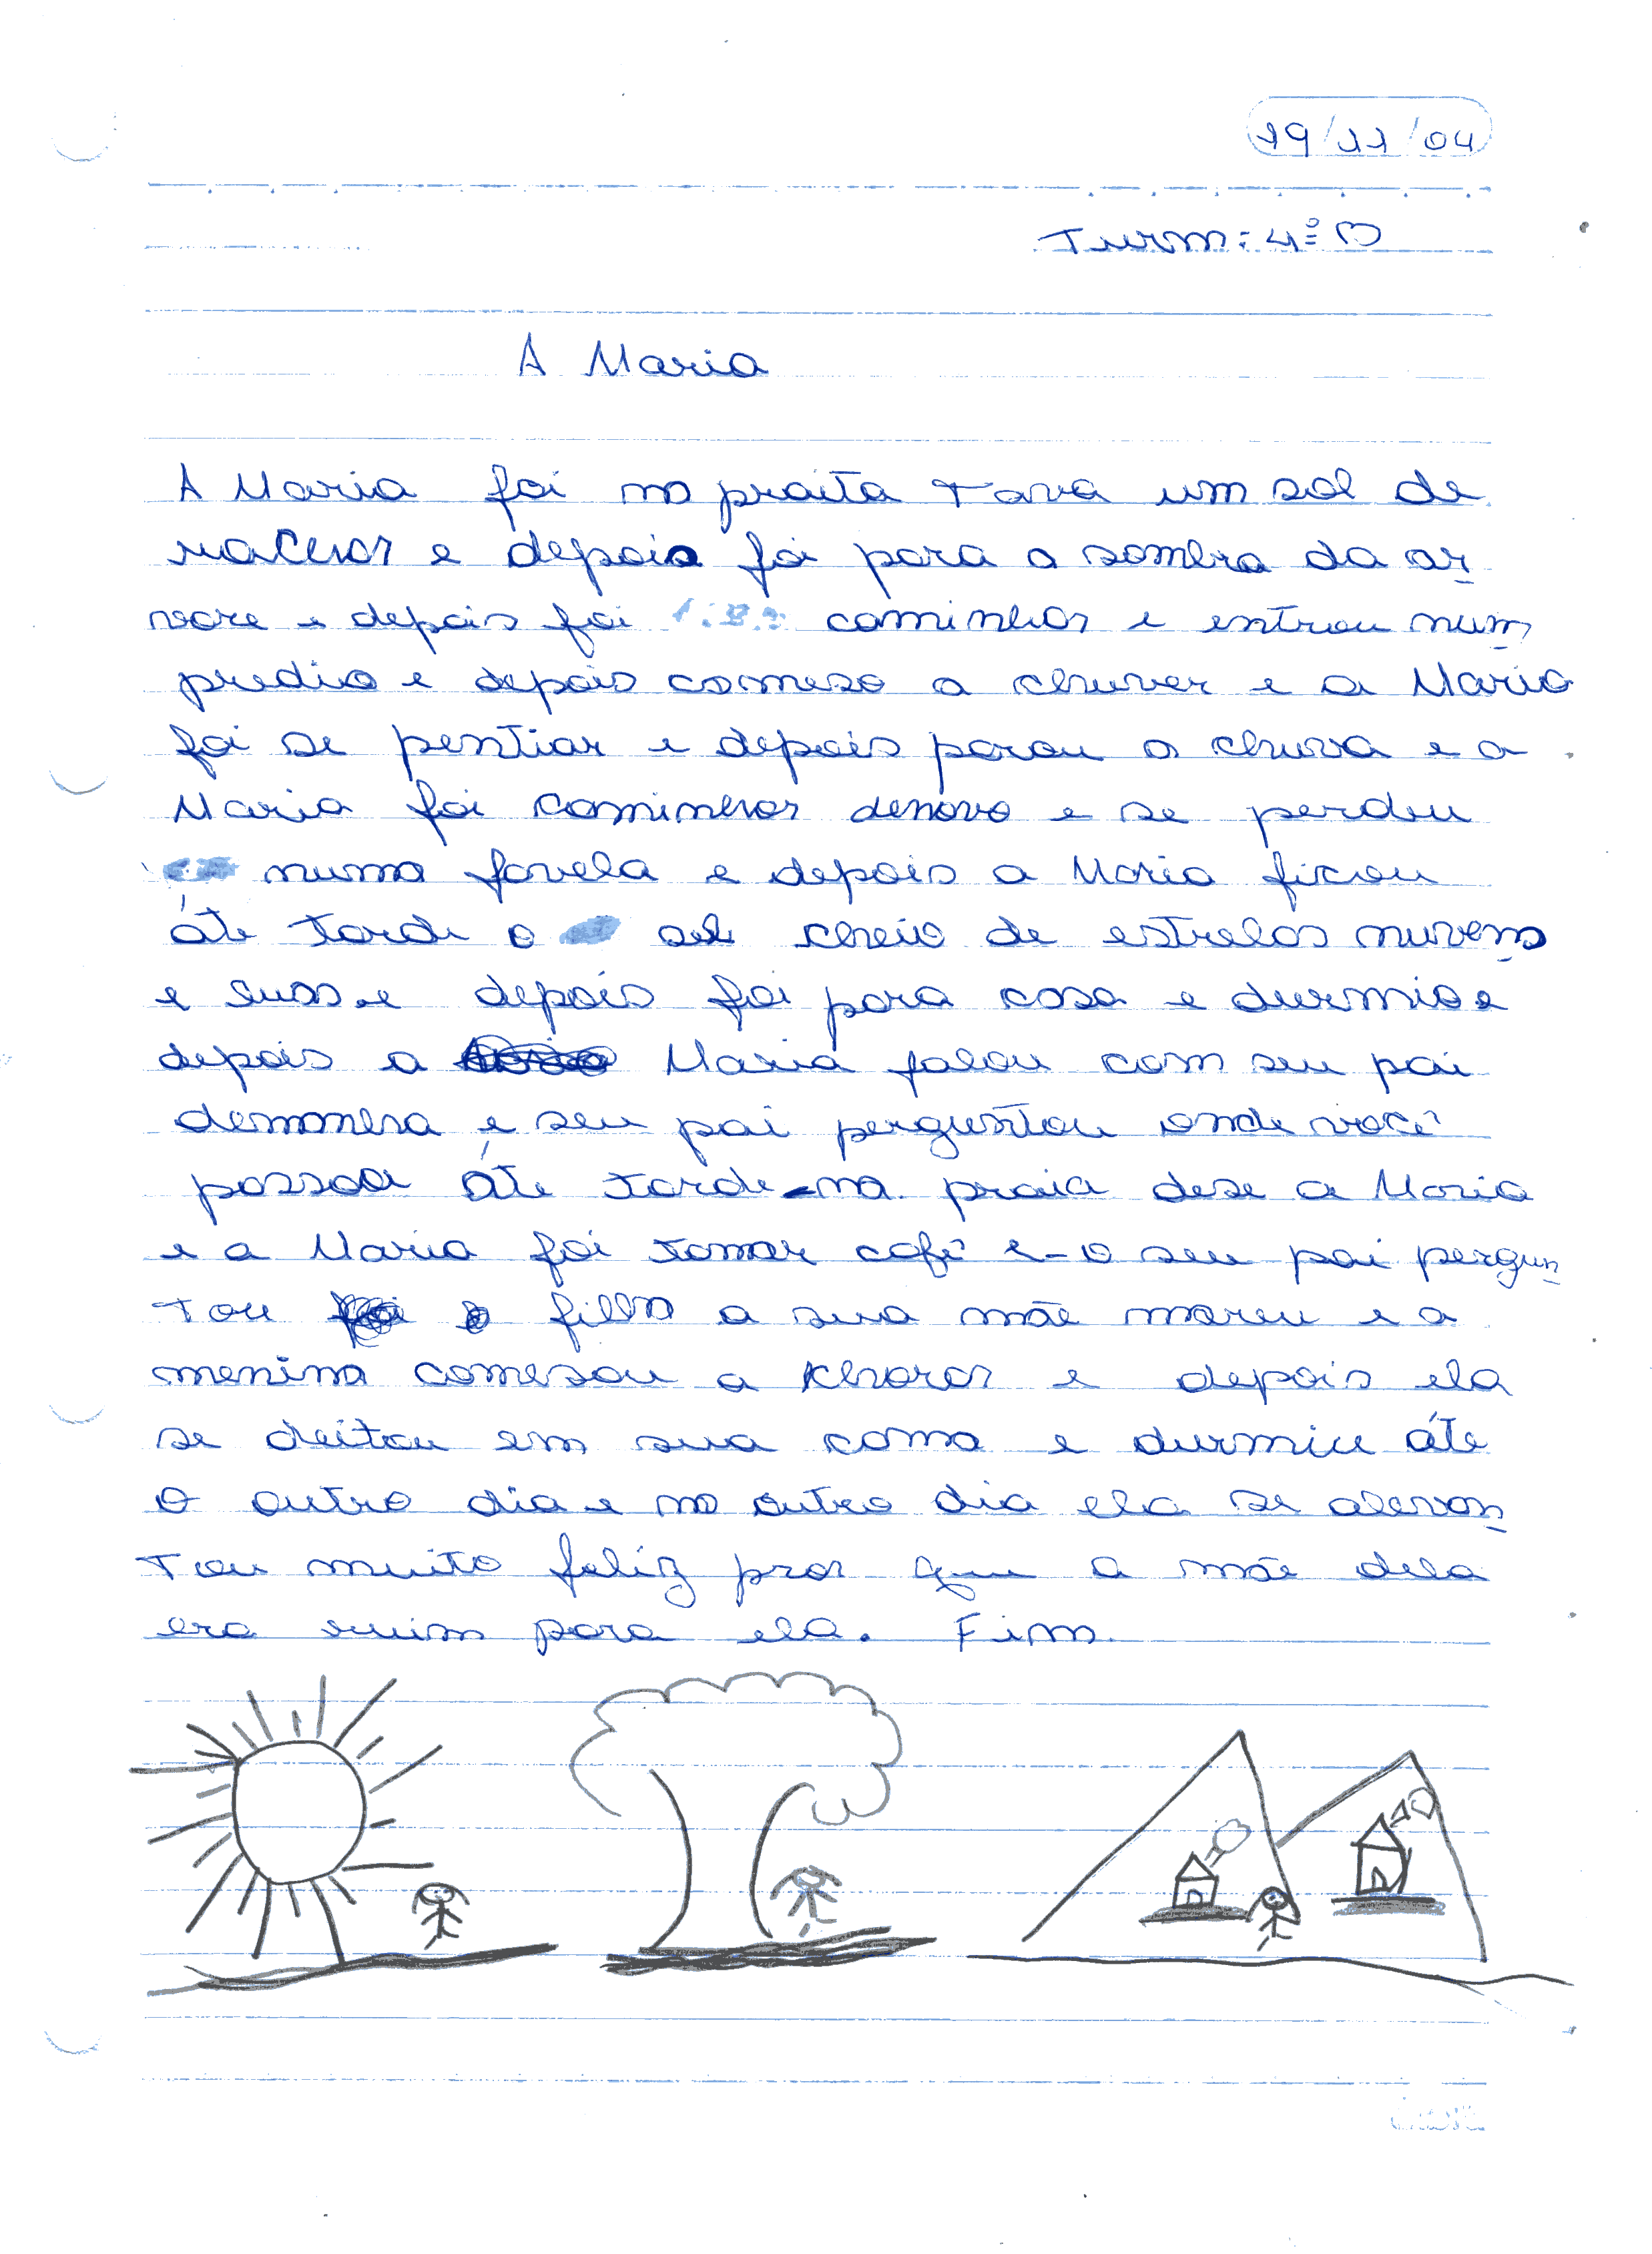 19/11/04
Turm: 4ª B
A Maria
A Maria foi no praita tava um sol de
rachar e depois foi para a sombra da ar
vore e depois foi caminhar e entrou num
predio e depois comeso a chuver e a Maria
foi se pentiar e depois parou a chuva e a
Maria foi caminhar denovo e se perdeu
numa favela e depois a Maria ficou
áte tarde o cheio de estrelas nuvens
e depois foi para casa e durmio e
depois a Maria falou com seu pai
demanha e seu pai perguntou onde você
passou áte tarde - na praia dese a Maria
e a Maria foi tomar café e - o seu pai pergun
tou filha a sua mãe moreu e a
menina comesou a chorar e depois ela
se deitou em sua cama e durmiu áte
o outro dia e no outro dia ela se alevan
tou muito feliz por que a mãe dela
era ruim para ela. Fim.